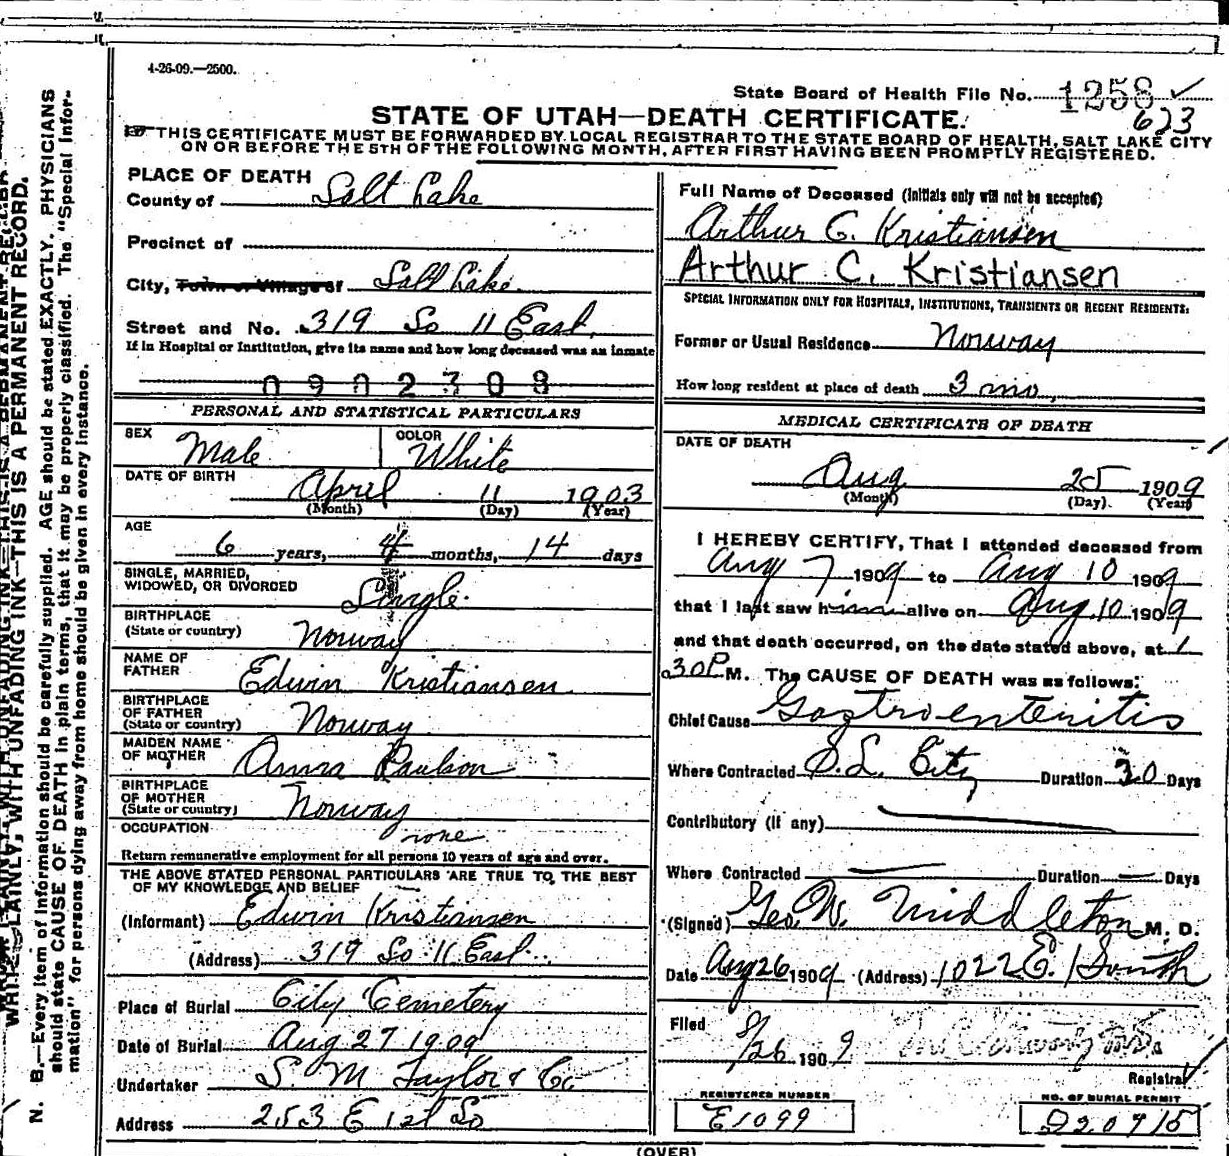 4-26-09.—2500.
State Board of Health File No. 1258 ✓
623
STATE OF UTAH—DEATH CERTIFICATE.
THIS CERTIFICATE MUST BE FORWARDED BY LOCAL REGISTRAR TO THE STATE BOARD OF HEALTH, SALT LAKE CITY
ON OR BEFORE THE 5TH OF THE FOLLOWING MONTH, AFTER FIRST HAVING BEEN PROMPTLY REGISTERED.
PLACE OF DEATH
County of Salt Lake
Precinct of
City, Town or Village of Salt Lake
Street and No. 319 So 11 East
If in Hospital or Institution, give its name and how long deceased was an inmate
0902308
PERSONAL AND STATISTICAL PARTICULARS
SEX Male COLOR White
DATE OF BIRTH
April 11 1903
(Month) (Day) (Year)
AGE
6 years, 4 months, 14 days
SINGLE, MARRIED,
WIDOWED, OR DIVORCED Single
BIRTHPLACE
(State or country) Norway
NAME OF
FATHER Edwin Kristiansen
BIRTHPLACE
OF FATHER
(State or country) Norway
MAIDEN NAME
OF MOTHER Anna Paulson
BIRTHPLACE
OF MOTHER
(State or country) Norway
OCCUPATION none
Return remunerative employment for all persons 10 years of age and over.
THE ABOVE STATED PERSONAL PARTICULARS ARE TRUE TO THE BEST
OF MY KNOWLEDGE AND BELIEF
(Informant) Edwin Kristiansen
(Address) 319 So 11 East
Place of Burial City Cemetery
Date of Burial Aug 27 1909
Undertaker S. M. Taylor & Co
Address 253 E 1st So
Full Name of Deceased (initials only will not be accepted)
Arthur C. Kristiansen
Arthur C. Kristiansen
SPECIAL INFORMATION ONLY FOR HOSPITALS, INSTITUTIONS, TRANSIENTS OR RECENT RESIDENTS:
Former or Usual Residence Norway
How long resident at place of death 3 mo,
MEDICAL CERTIFICATE OF DEATH
DATE OF DEATH
Aug 25 1909
(Month) (Day) (Year)
I HEREBY CERTIFY, That I attended deceased from
Aug 7 1909 to Aug 10 1909
that I last saw him alive on Aug 10 1909
and that death occurred, on the date stated above, at 1
30 P M. The CAUSE OF DEATH was as follows:
Chief Cause Gastroenteritis
Where Contracted S. L. City Duration 30 Days
Contributory (if any)
Where Contracted — Duration — Days
(Signed) Geo. W. Middleton M. D.
Date Aug 26 1909 (Address) 1022 E. 1 South
Filed
8/26 1909
Registrar
REGISTERED NUMBER
E1099
NO. OF BURIAL PERMIT
D20915
(OVER)
WRITE PLAINLY, WITH UNFADING INK—THIS IS A PERMANENT RECORD.
N. B.—Every item of information should be carefully supplied. AGE should be stated EXACTLY. PHYSICIANS
should state CAUSE OF DEATH in plain terms, that it may be properly classified. The "Special Infor-
mation" for persons dying away from home should be given in every instance.